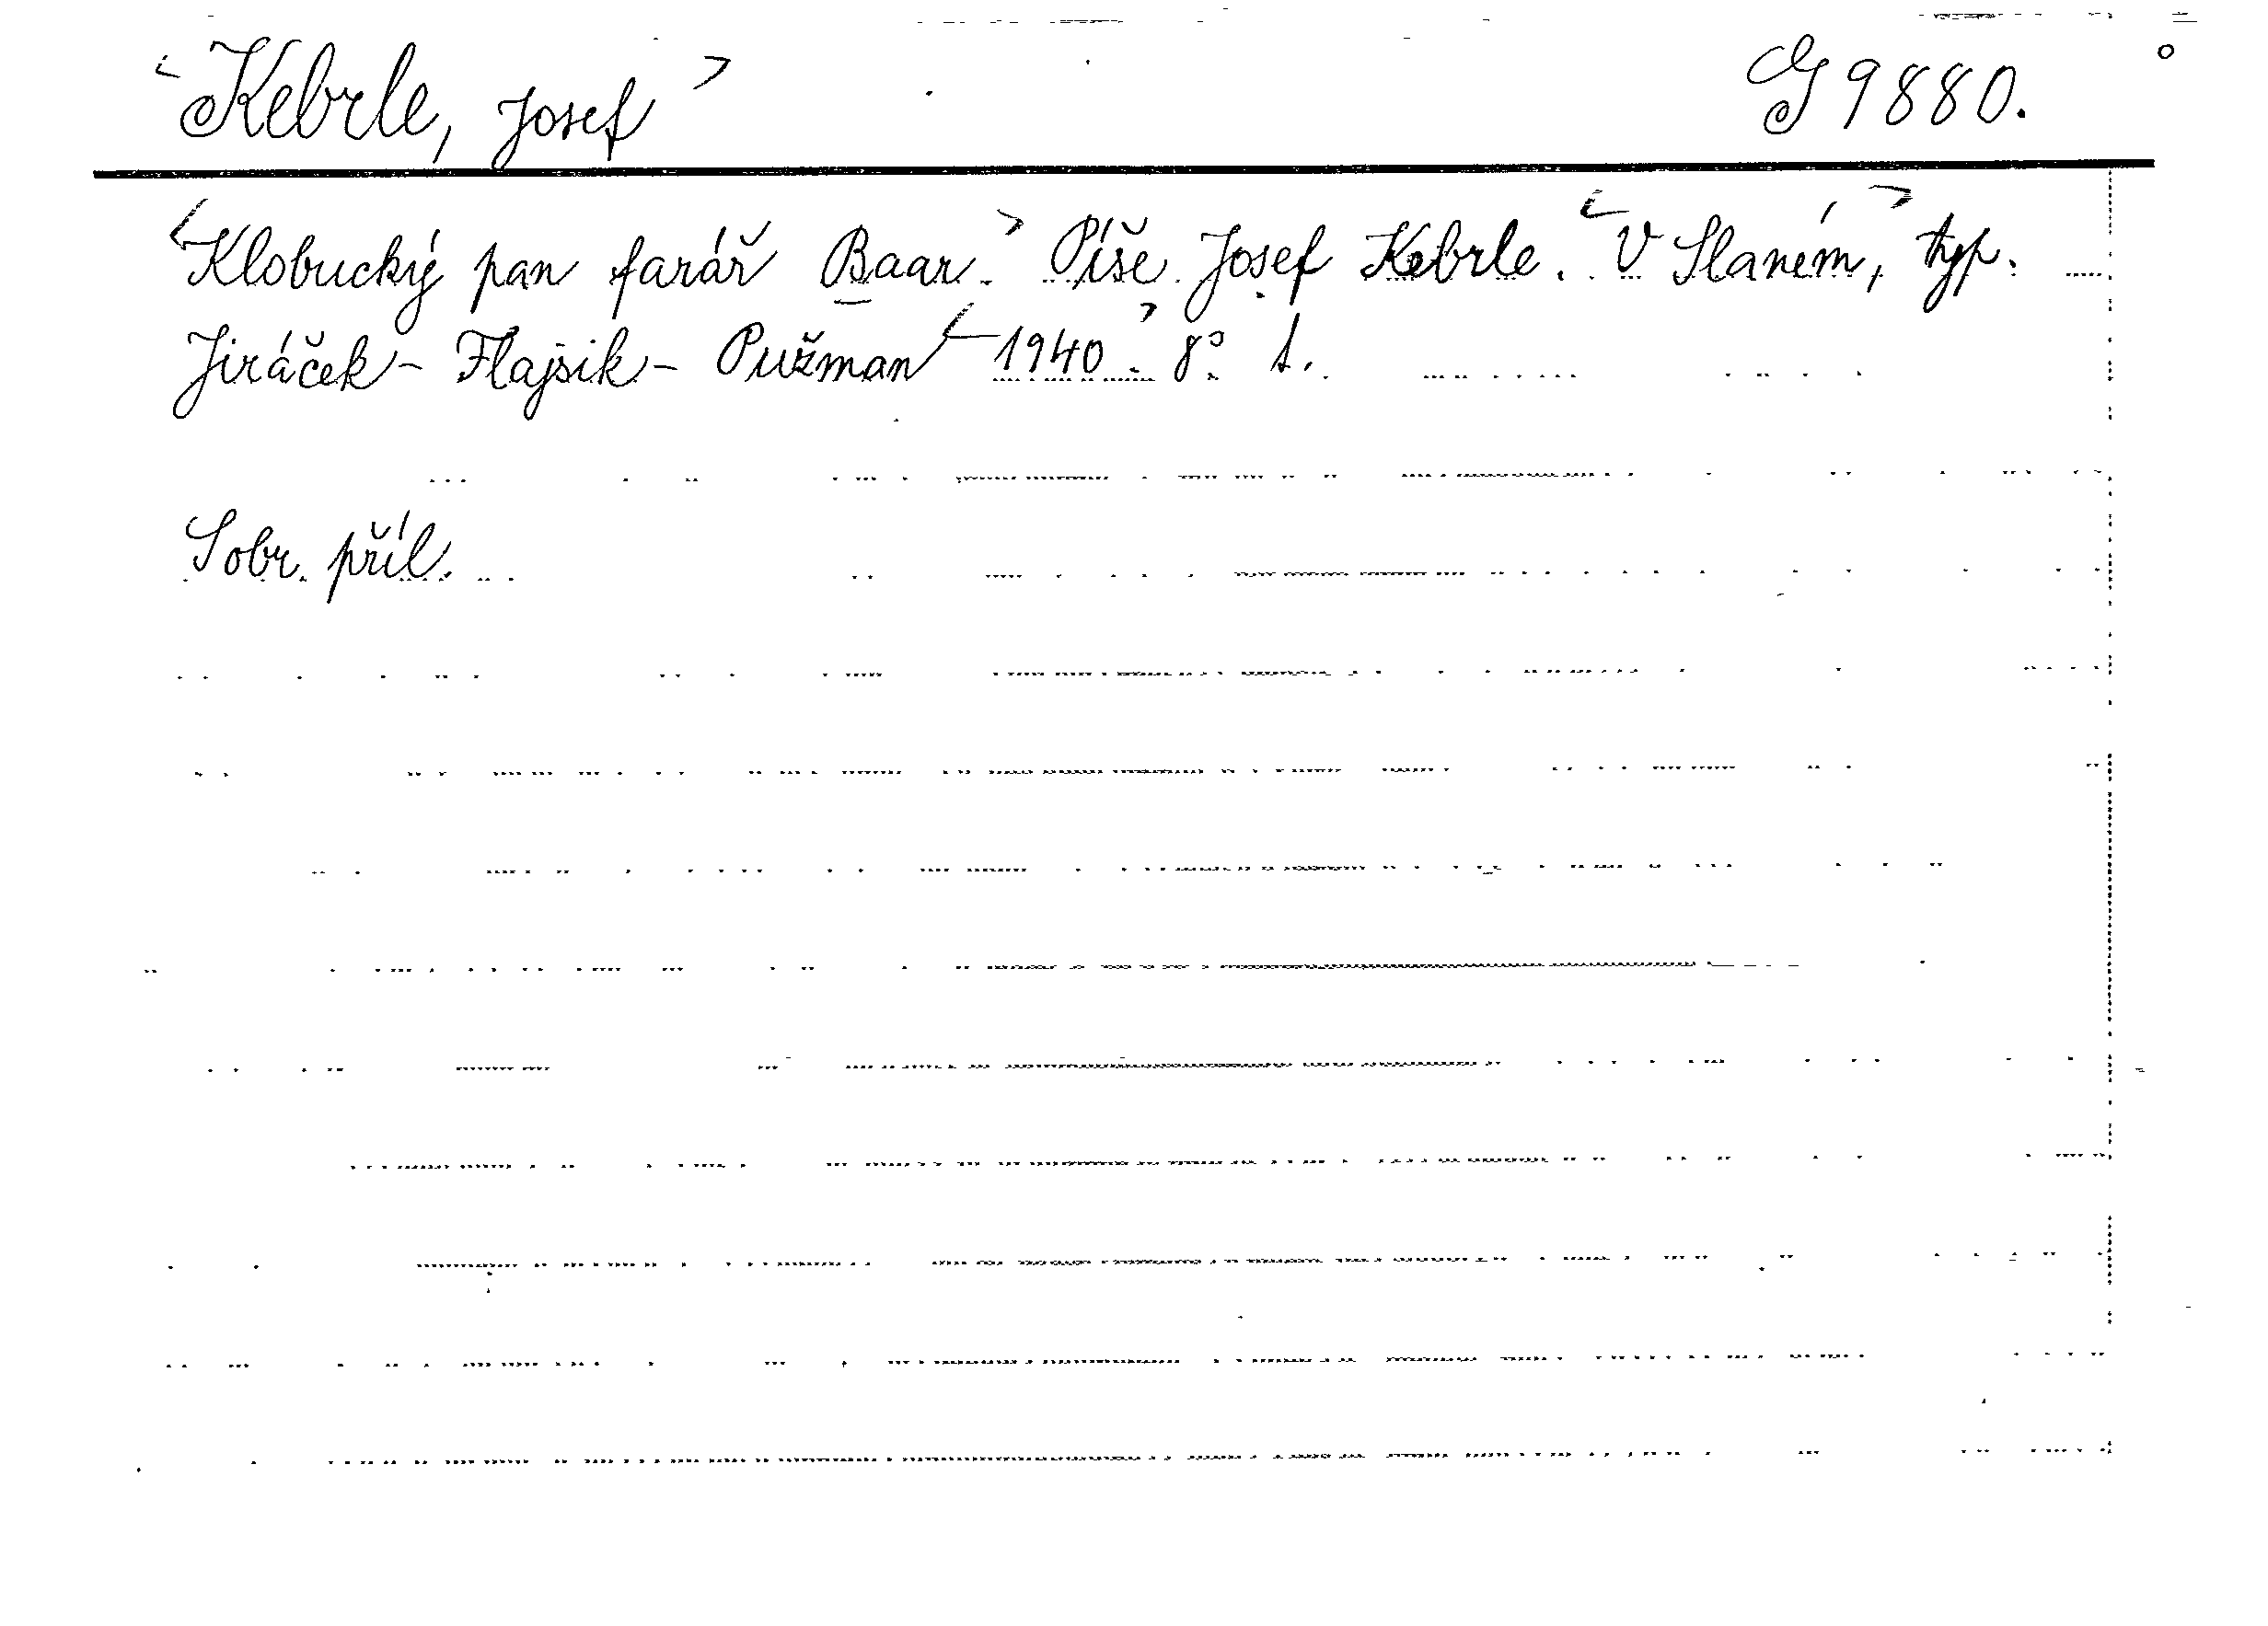 <Kebrle, Josef> G 9880.
<Klobucký pan farář Baar.> Píše Josef Kebrle. <V Slaném,> typ.
Jiráček - Flajsik - Pužman <1940.> 8° 1.
Sobr. příl.